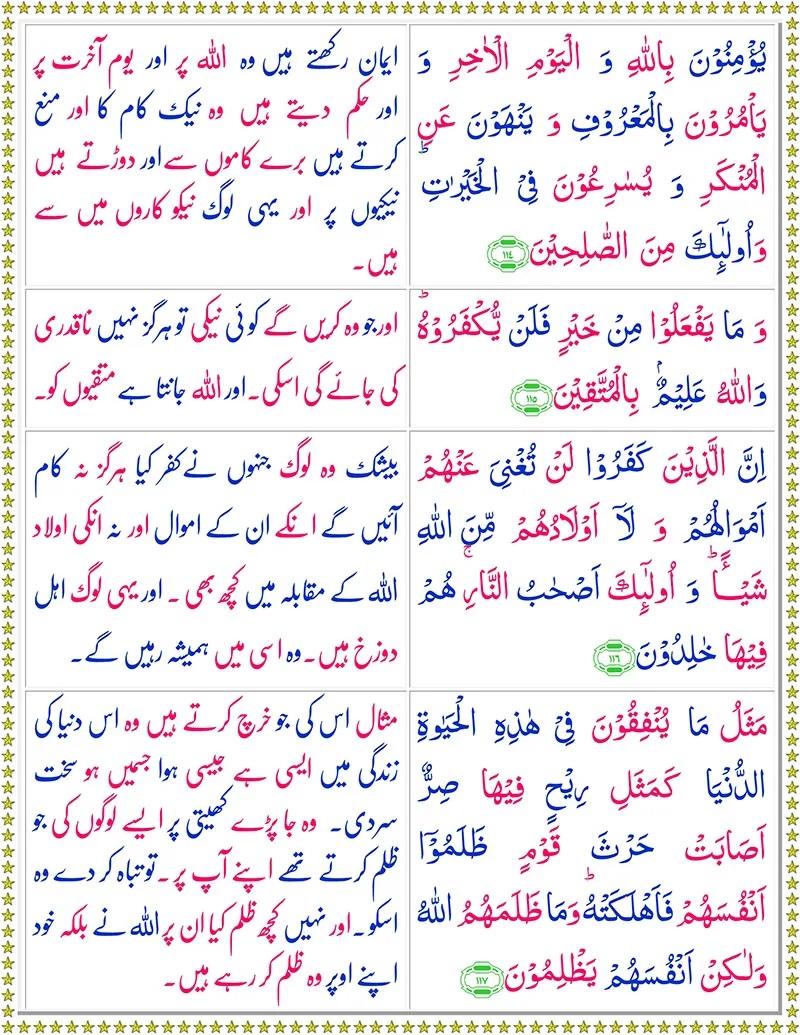 يُؤۡمِنُوۡنَ بِاللّٰهِ وَ الۡيَوۡمِ الۡاٰخِرِ وَ
يَاۡمُرُوۡنَ بِالۡمَعۡرُوۡفِ وَ يَنۡهَوۡنَ عَنِ
الۡمُنۡكَرِ وَ يُسَارِعُوۡنَ فِى الۡخَيۡرٰتِؕ
وَاُولٰٓٮِٕكَ مِنَ الصّٰلِحِيۡنَ ﴿۱۱۴﴾
ایمان رکھتے ہیں وہ اللہ پر اور یوم آخرت پر
اور حکم دیتے ہیں وہ نیک کام کا اور منع
کرتے ہیں برے کاموں سے اور دوڑتے ہیں
نیکیوں پر اور یہی لوگ نیکو کاروں میں سے
ہیں۔
وَ مَا يَفۡعَلُوۡا مِنۡ خَيۡرٍ فَلَنۡ يُّكۡفَرُوۡهُؕ
وَاللّٰهُ عَلِيۡمٌۢ بِالۡمُتَّقِيۡنَ ﴿۱۱۵﴾
اور جو وہ کریں گے کوئی نیکی تو ہرگز نہیں ناقدری
کی جائے گی اسکی۔ اور اللہ جانتا ہے متقیوں کو۔
اِنَّ الَّذِيۡنَ كَفَرُوۡا لَنۡ تُغۡنِىَ عَنۡهُمۡ
اَمۡوَالُهُمۡ وَ لَاۤ اَوۡلَادُهُمۡ مِّنَ اللّٰهِ
شَيۡــًٔــاؕ وَ اُولٰٓٮِٕكَ اَصۡحٰبُ النَّارِۚ هُمۡ
فِيۡهَا خٰلِدُوۡنَ ﴿۱۱۶﴾
بیشک وہ لوگ جنہوں نے کفر کیا ہرگز نہ کام
آئیں گے انکے ان کے اموال اور نہ انکی اولاد
اللہ کے مقابلہ میں کچھ بھی۔ اور یہی لوگ اہل
دوزخ ہیں۔ وہ اسی میں ہمیشہ رہیں گے۔
مَثَلُ مَا يُنۡفِقُوۡنَ فِىۡ هٰذِهِ الۡحَيٰوةِ
الدُّنۡيَا كَمَثَلِ رِيۡحٍ فِيۡهَا صِرٌّ
اَصَابَتۡ حَرۡثَ قَوۡمٍ ظَلَمُوۡۤا
اَنۡفُسَهُمۡ فَاَهۡلَكَتۡهُؕ وَمَا ظَلَمَهُمُ اللّٰهُ
وَلٰـكِنۡ اَنۡفُسَهُمۡ يَظۡلِمُوۡنَ ﴿۱۱۷﴾
مثال اس کی جو خرچ کرتے ہیں وہ اس دنیا کی
زندگی میں ایسی ہے جیسی ہوا جسمیں ہو سخت
سردی۔ وہ جا پڑے کھیتی پر ایسے لوگوں کی جو
ظلم کرتے تھے اپنے آپ پر۔ تو تباہ کر دے وہ
اسکو۔ اور نہیں کچھ ظلم کیا ان پر اللہ نے بلکہ خود
اپنے اوپر وہ ظلم کر رہے ہیں۔